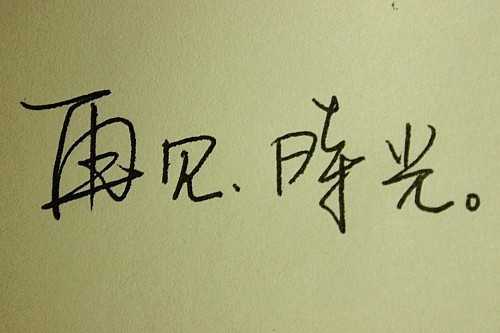 再见、時光。